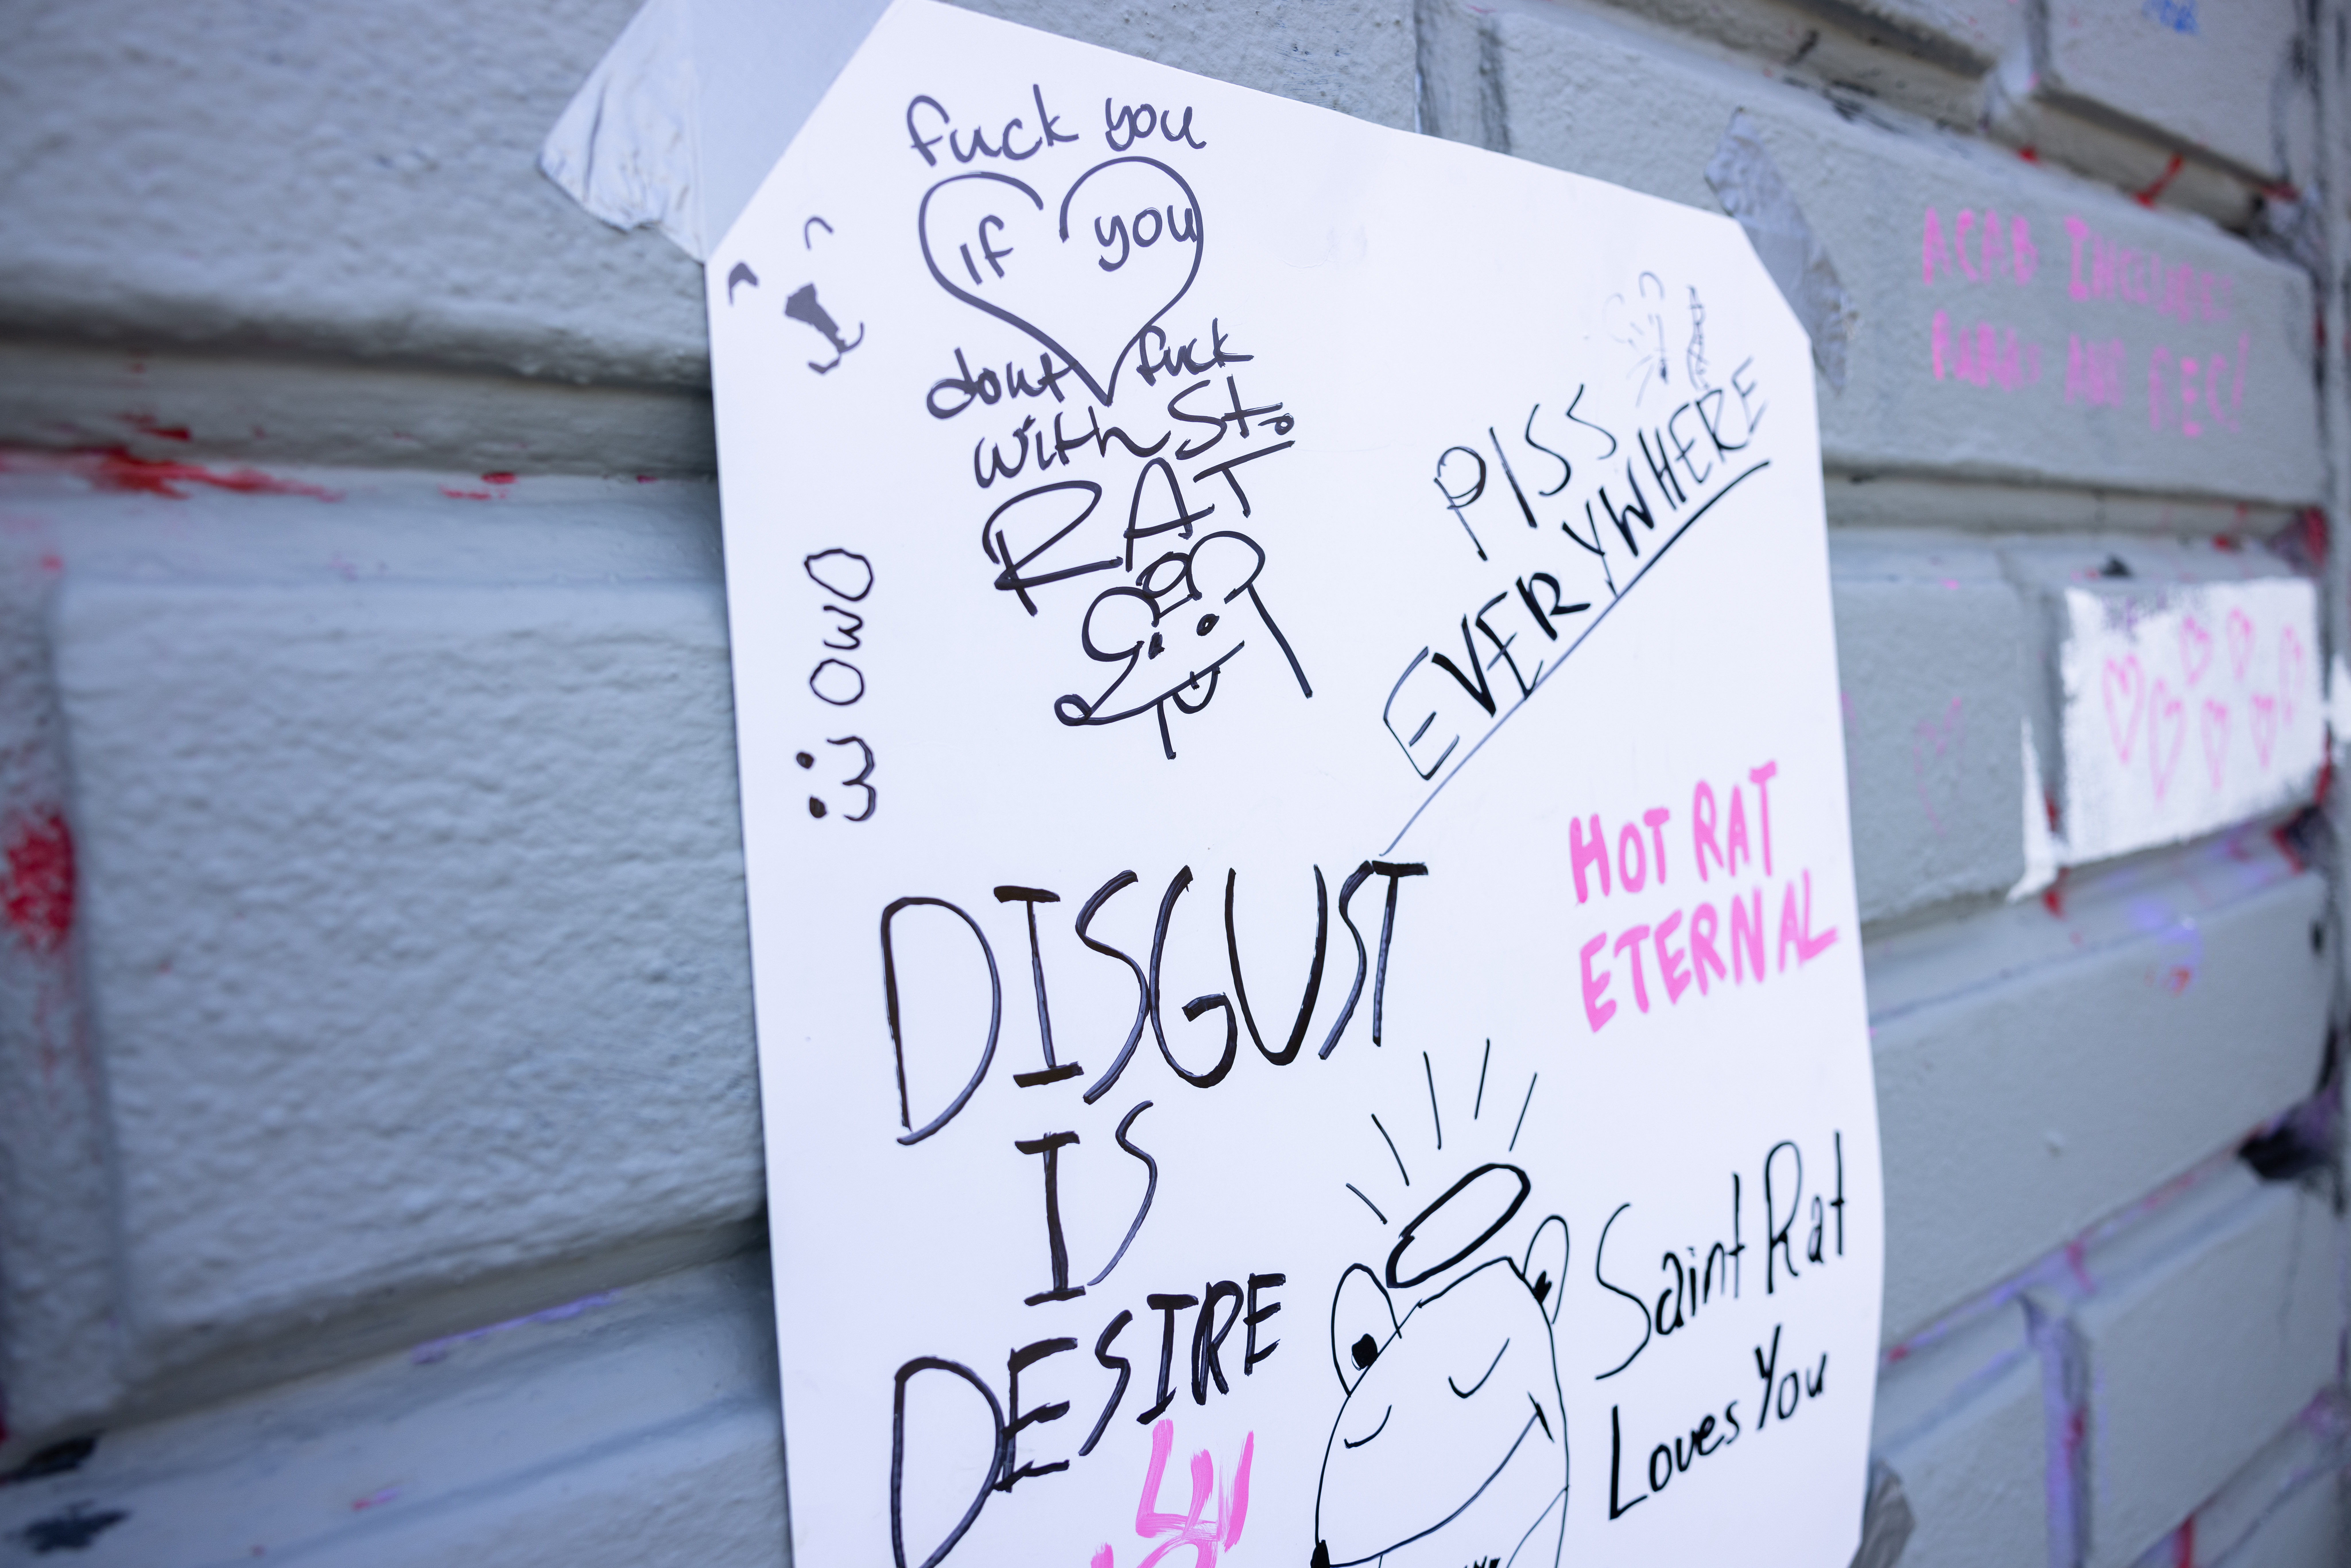 fuck you
if you
dont fuck
with St.
RAT
PISS
EVERYWHERE
OwO
:3
HOT RAT
ETERNAL
DISGUST
IS
DESIRE
Saint Rat
Loves You
ACAB